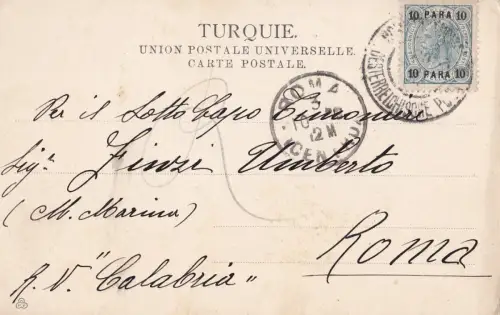 TURQUIE.
UNION POSTALE UNIVERSELLE.
CARTE POSTALE.
10 PARA 10
10 PARA 10
ROMA
3
12 M
Per il Sotto Capo Timoniere
Sigr. Finzi Umberto
(M. Marina)
R. N. "Calabria"
Roma